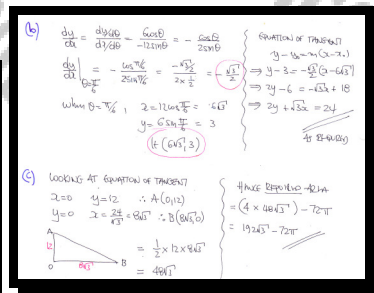 (b) dy/dx = dy/dθ / dx/dθ = 6cosθ / -12sinθ = - cosθ / 2sinθ
dy/dx | θ=π/6 = - cos π/6 / 2sin π/6 = - √3/2 / 2×½ = - √3/2
When θ=π/6, x = 12cos π/6 = 6√3
y = 6sin π/6 = 3
It (6√3, 3)
EQUATION OF TANGENT
y - y₀ = m(x - x₀)
⇒ y - 3 = -√3/2 (x - 6√3)
⇒ 2y - 6 = -√3x + 18
⇒ 2y + √3x = 24
AS REQUIRED
(c) LOOKING AT EQUATION OF TANGENT
x=0 y=12 ∴ A(0,12)
y=0 x = 24/√3 = 8√3 ∴ B(8√3,0)
A
12
O 8√3 B
= ½ × 12 × 8√3
= 48√3
HENCE REQUIRED AREA
= (4 × 48√3) - 72π
= 192√3 - 72π